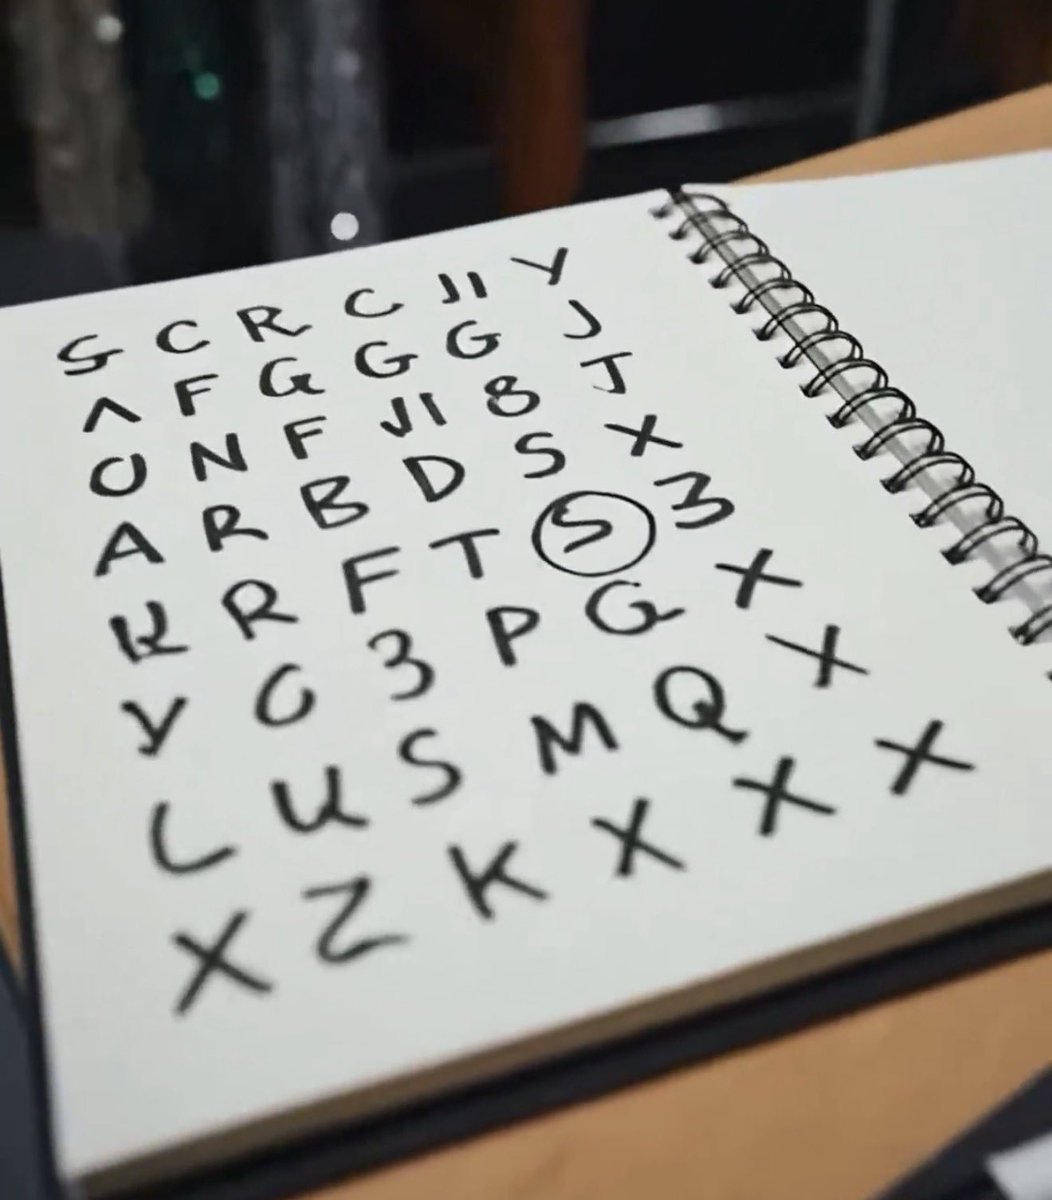 S C R C JI Y
Λ F G G G J
O N F JI 8 J
A R B D S X
R F T S 3
Y O 3 P G X
L U S M Q X
X Z K X X X